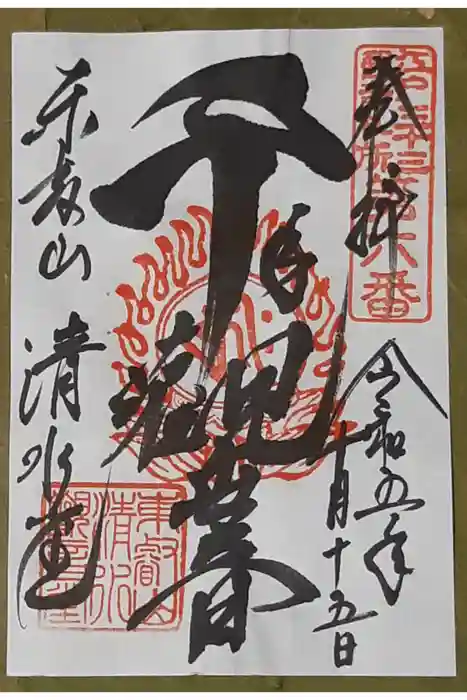 奉拝
令和五年
十月十五日
千手
観世音
東叡山 清水堂
六番
東叡山
清水
観音堂